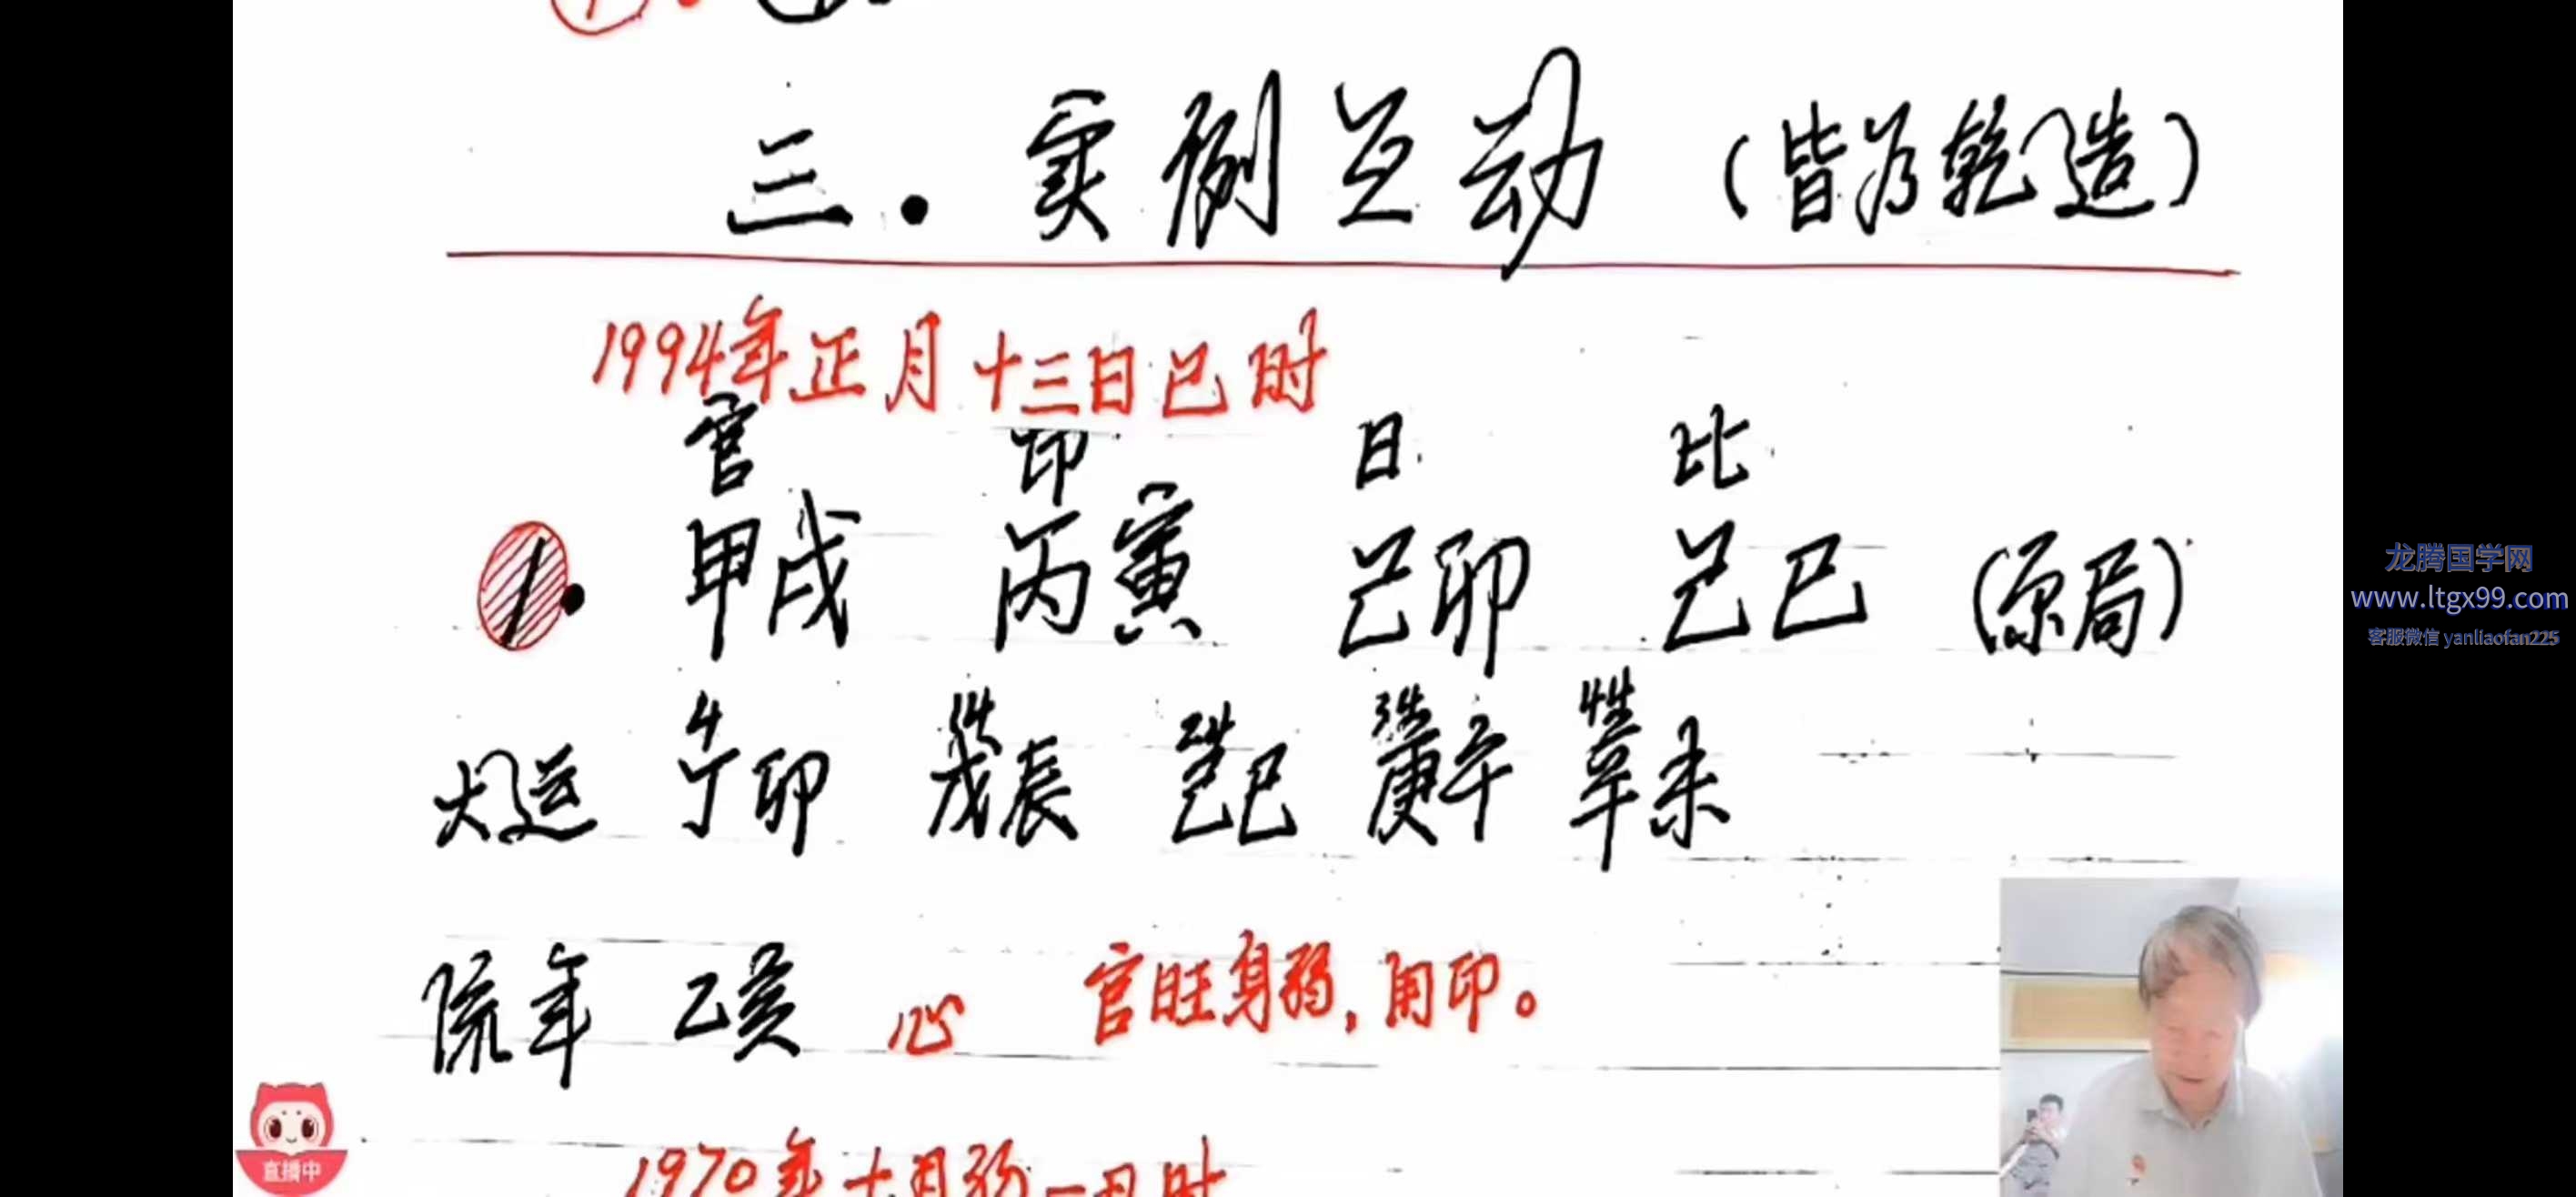 三.实例互动(皆为乾造)
1994年正月十三日巳时
官 印 日 比
1. 甲戌 丙寅 己卯 己巳 (原局)
4 14 24 34 44
大运 丁卯 戊辰 己巳 庚午 辛未
流年 乙亥 心 官旺身弱,用印。
1970年
直播中
龙腾国学网
www.ltgx99.com
客服微信 yanliaofan225